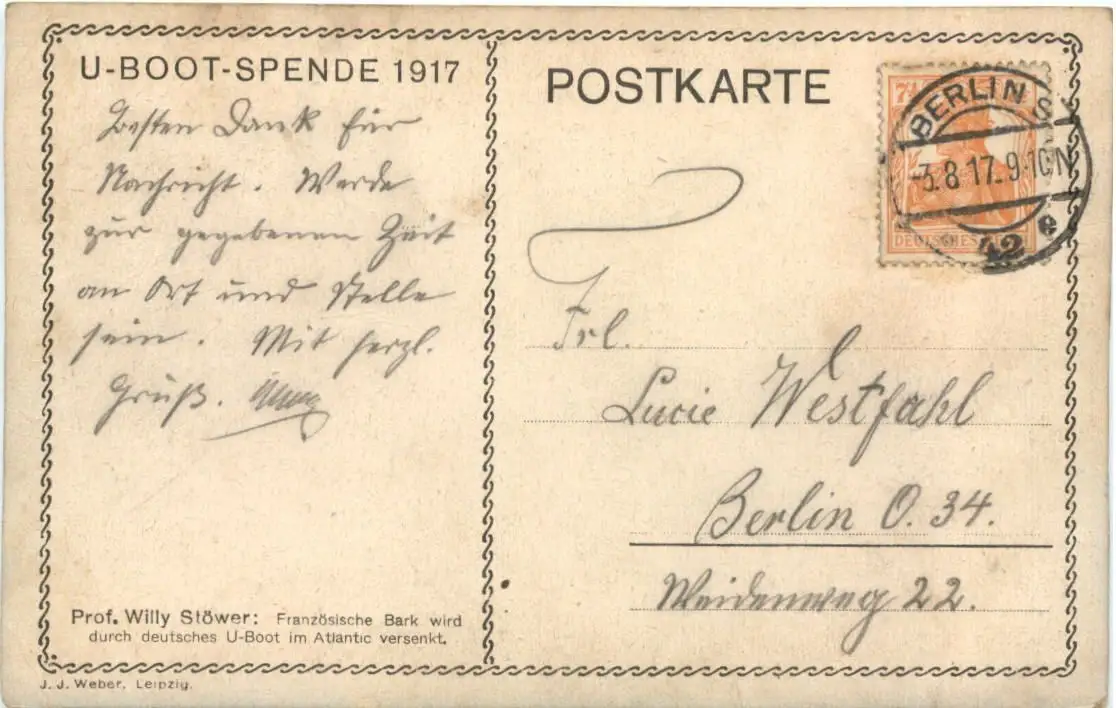 U-BOOT-SPENDE 1917
Besten Dank für
Nachricht. Werde
zur gegebenen Zeit
an Ort und Stelle
sein. Mit herzl.
Gruß.
Prof. Willy Stöwer: Französische Bark wird
durch deutsches U-Boot im Atlantic versenkt.
J. J. Weber, Leipzig.
POSTKARTE
7½
DEUTSCHES
BERLIN S
3.8.17.9-10N
42 e
Frl.
Lucie Westfahl
Berlin O. 34.
Weidenweg 22.